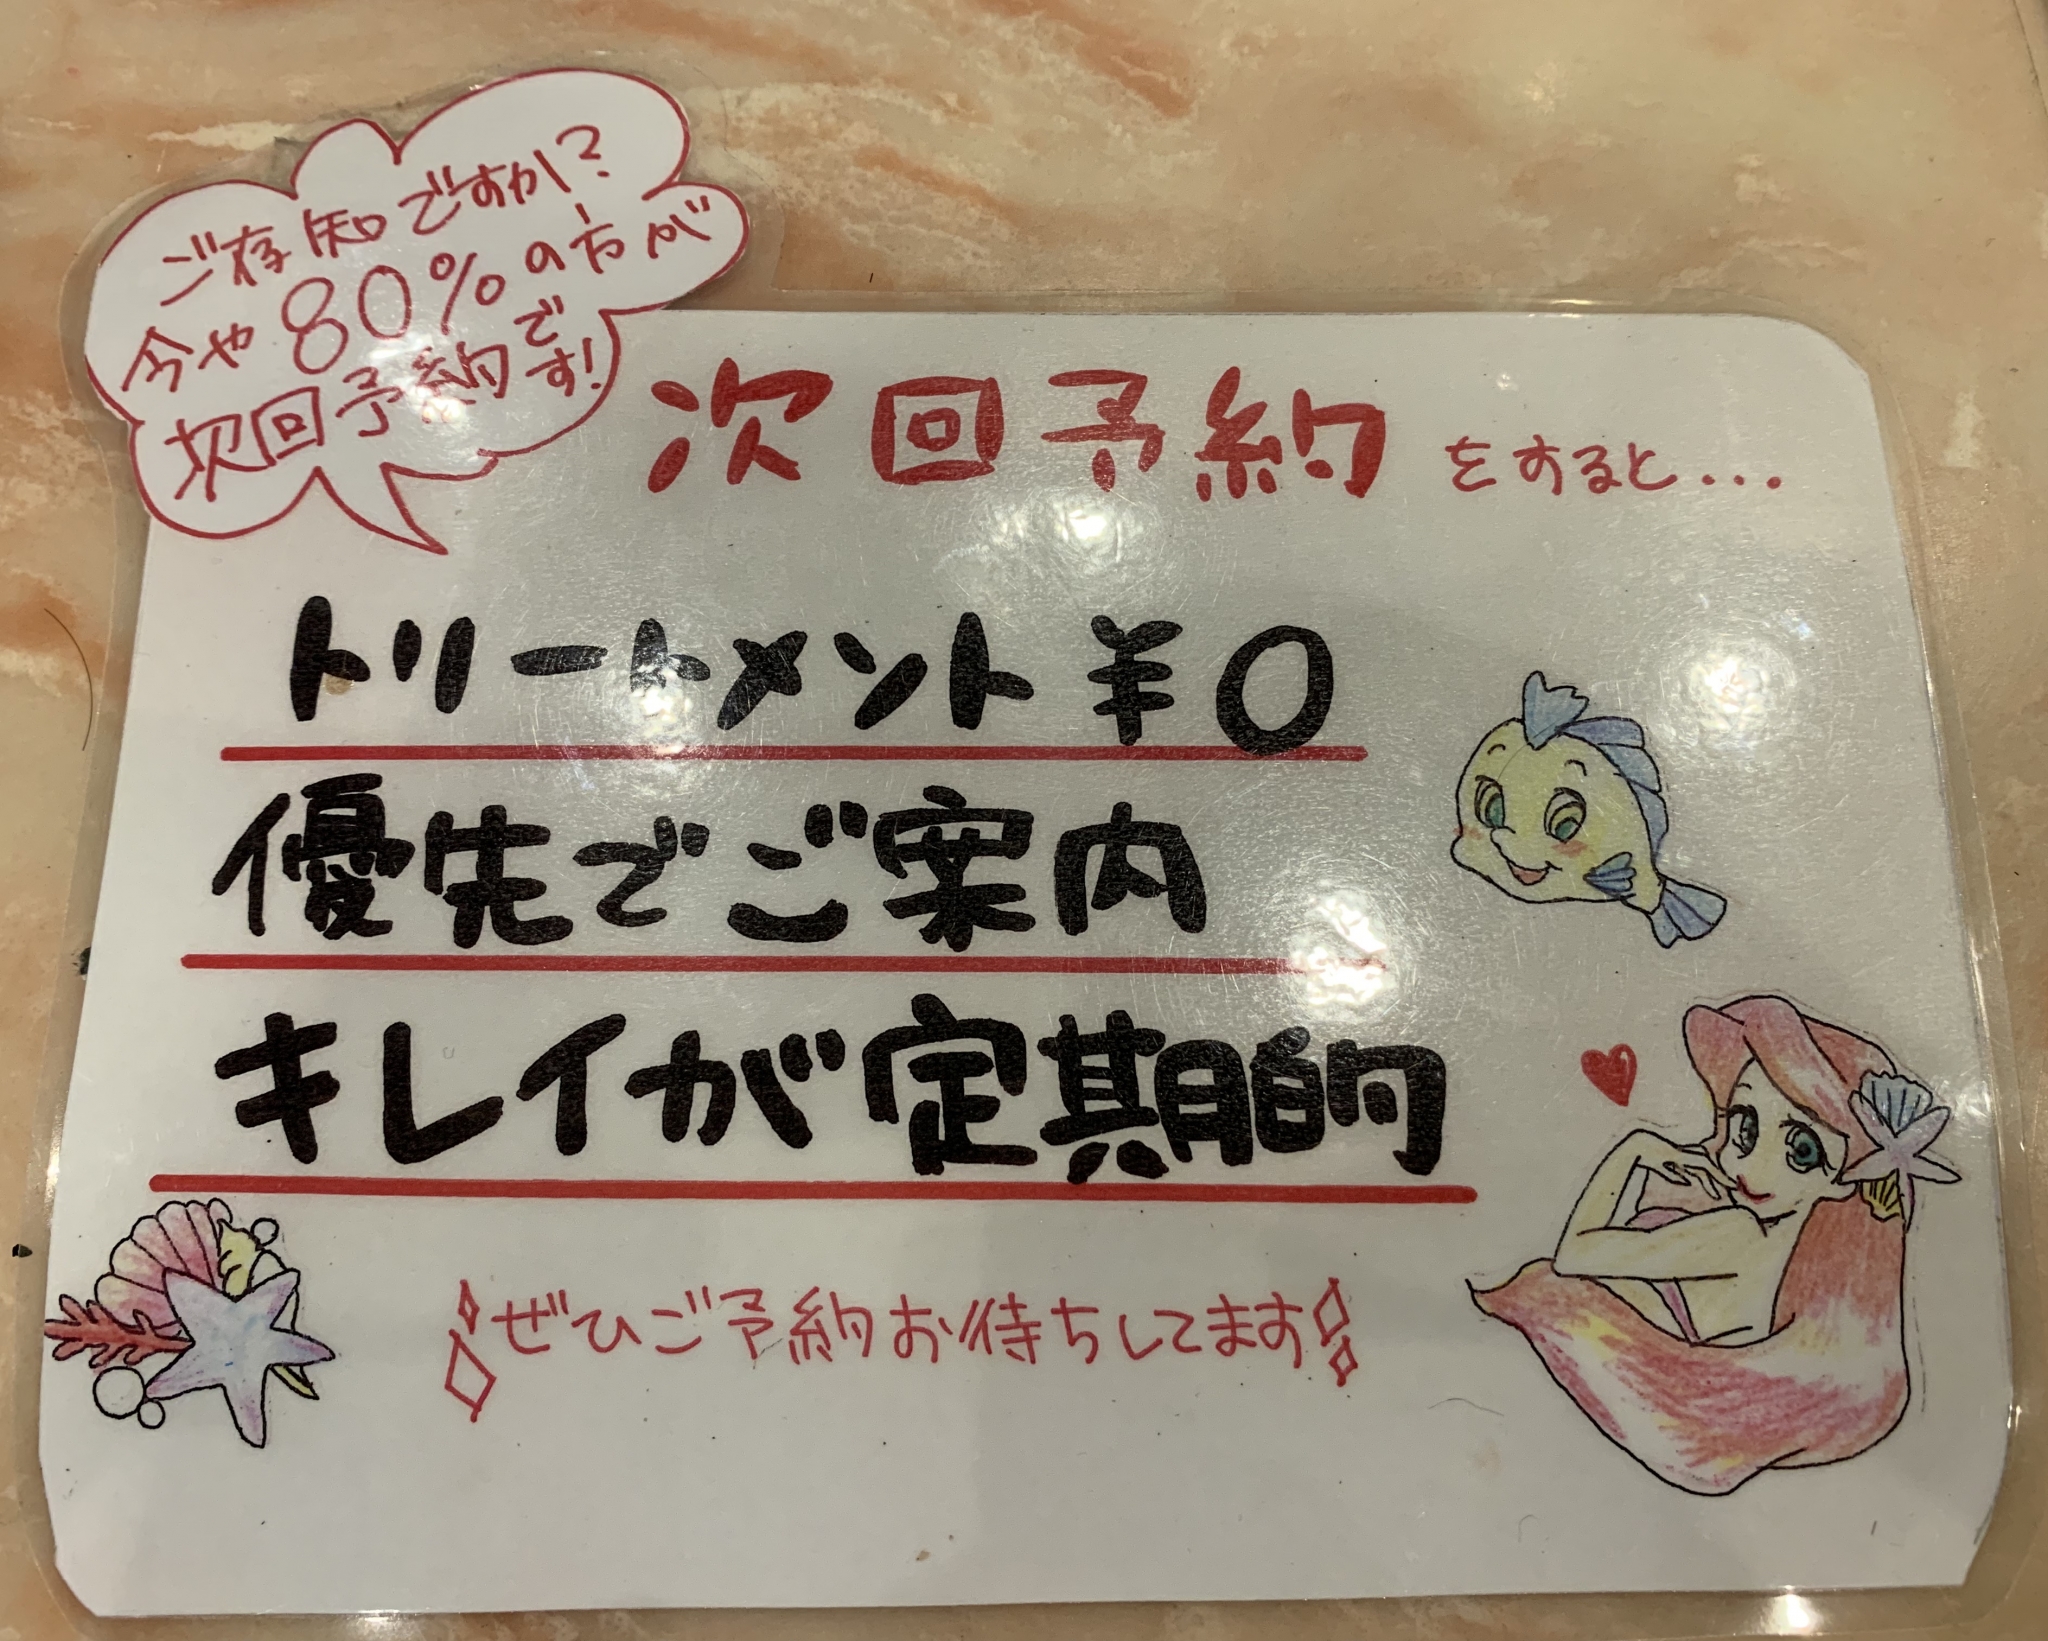 ご存知ですか?
今や80%の方が
次回予約です!
次回予約をすると...
トリートメント¥0
優先でご案内
キレイが定期的
ぜひご予約お待ちしてます